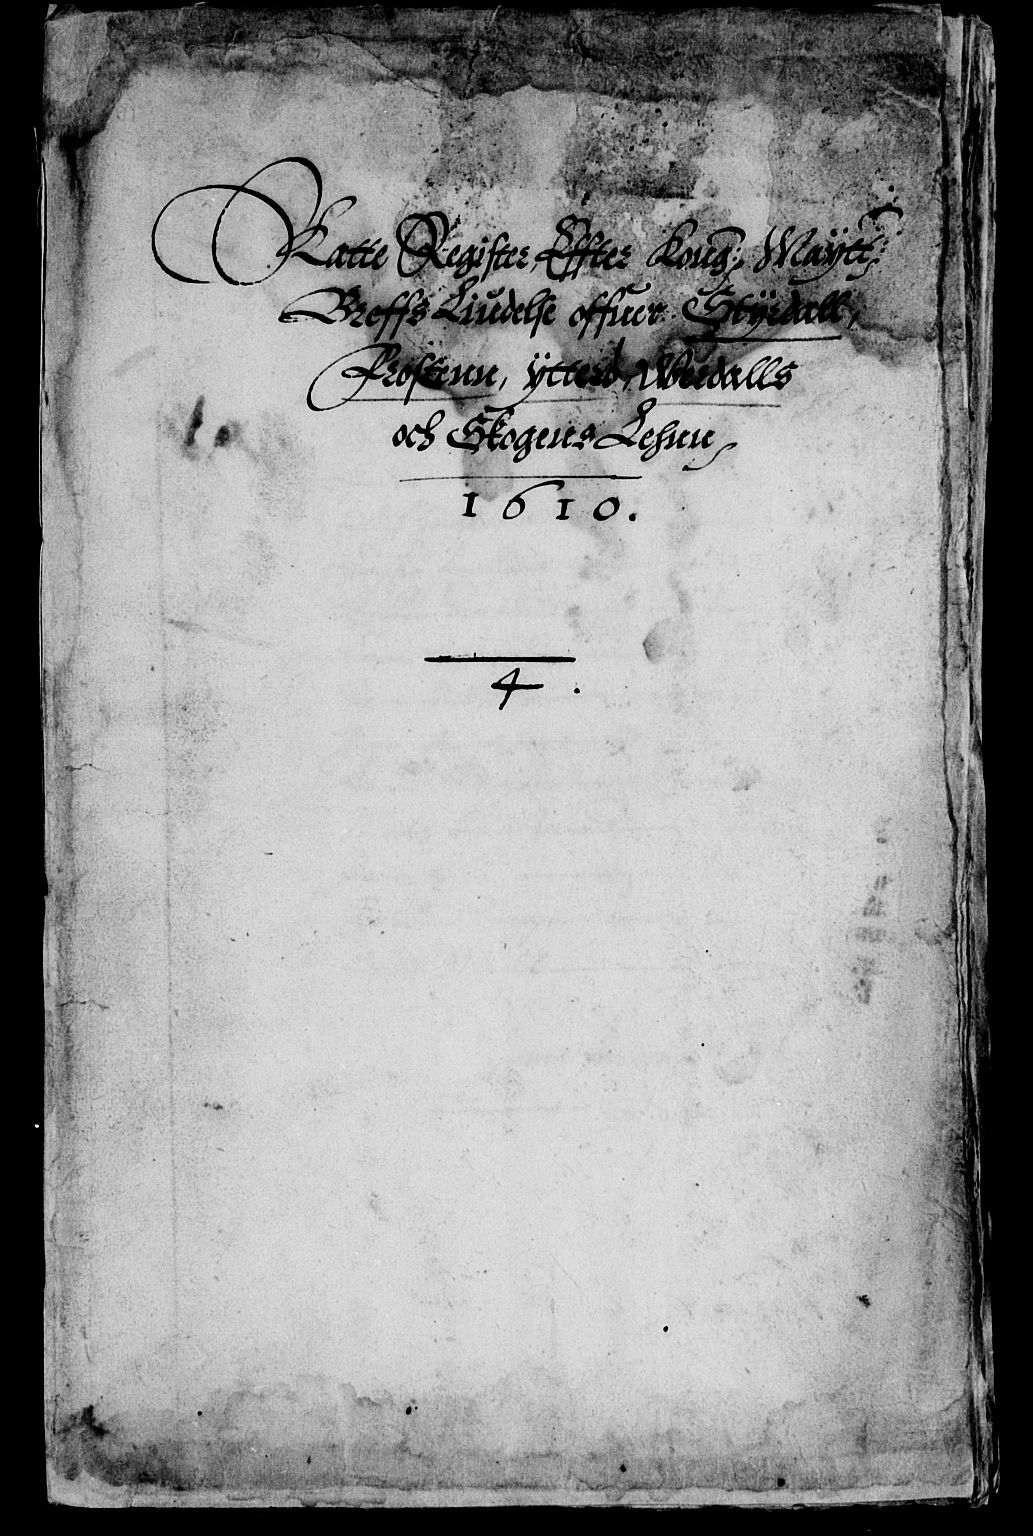 Skatte Register Effter Kong: Maÿtt:
Breffs Liudelse offuer Stÿrdall,
Frostenn, ÿtterø, Werdalls
och Skogens Lehnn,
1610.
4.